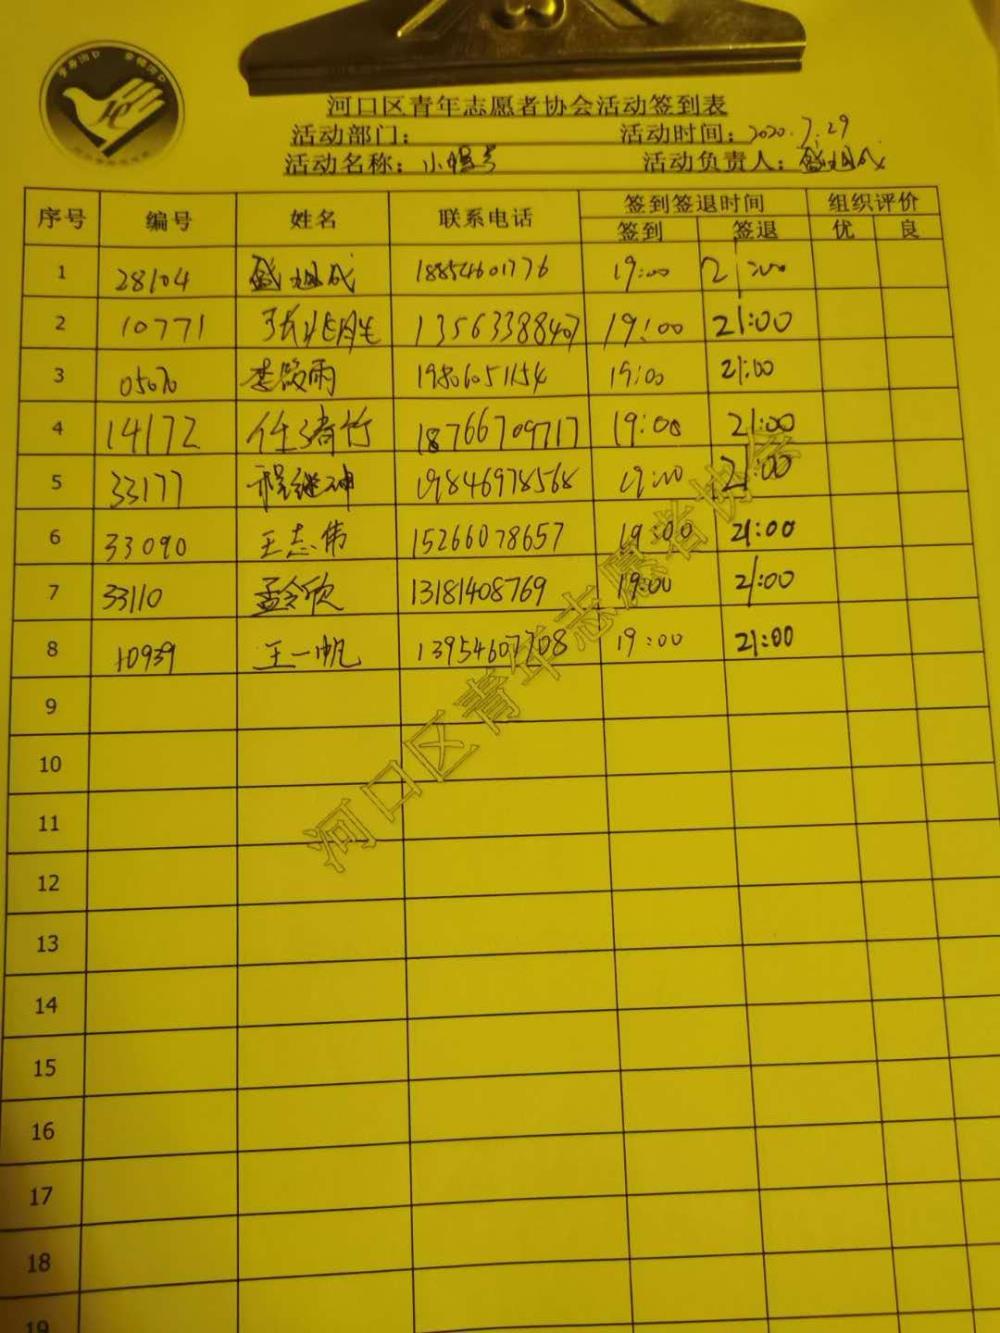 河口区青年志愿者协会活动签到表
活动部门： 活动时间：2020.7.29
活动名称： 活动负责人：
序号 编号 姓名 联系电话 签到签退时间 组织评价
签到 签退 优 良
1 28104 18854601776 19:00 21:00
2 10771 张兆胜 13563388407 19:00 21:00
3 05070 19806051154 19:00 21:00
4 14172 任绪竹 18766709717 19:00 21:00
5 33177 程继坤 19846978568 19:00 21:00
6 33090 王志伟 15266078657 19:00 21:00
7 33110 孟令欣 13181408769 19:00 21:00
8 10939 王一帆 13954607708 19:00 21:00
9
10
11
12
13
14
15
16
17
18
19
河口区青年志愿者协会